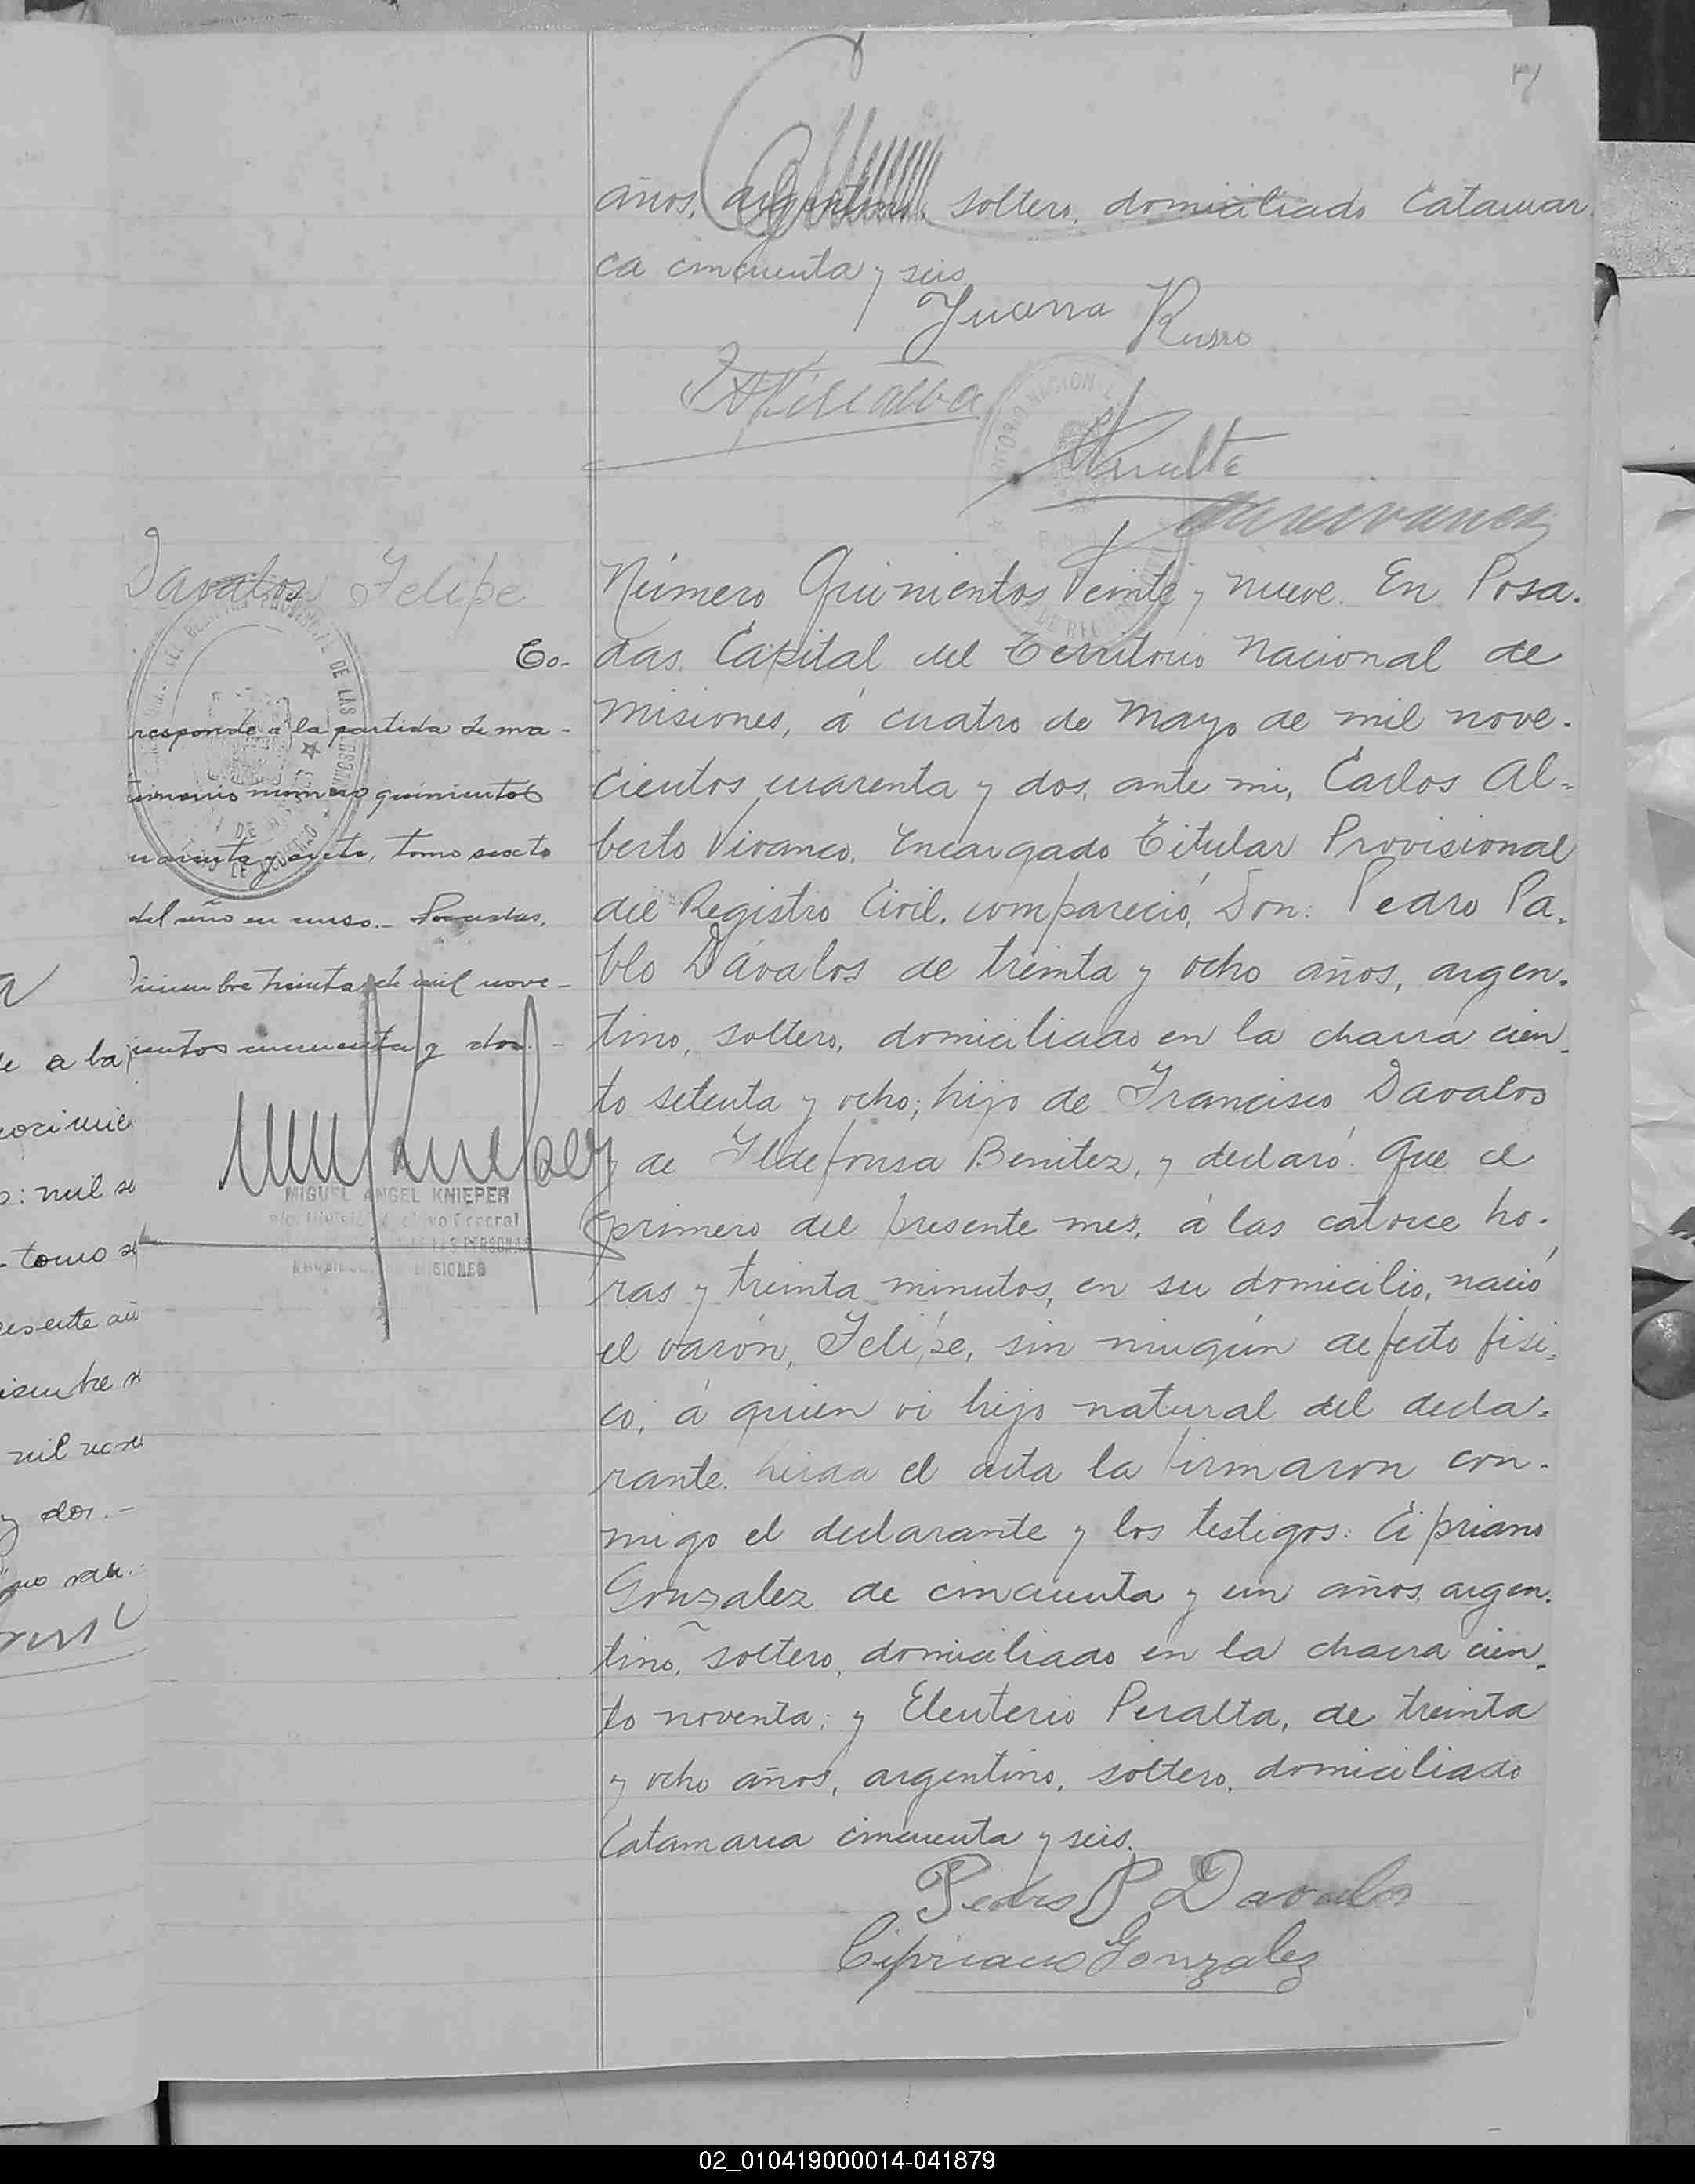 años, argentino, soltero, domiciliado Catamar
ca cincuenta y seis
Juana Russo
Villalba
Peralta
Davalos Felipe
Co-
rresponde a la partida de ma-
trimonio número quinientos
siete, tomo sexto
del año en curso.- Posadas,
treinta de mil nove-
cientos cincuenta y dos.-
MIGUEL ANGEL KNIEPER
General
DE LAS PERSONAS
MISIONES
Número Quinientos Veinte y nueve. En Posa.
das, Capital del Territorio Nacional de
Misiones, á cuatro de Mayo de mil nove.
cientos cuarenta y dos, ante mi, Carlos Al=
berto Vivanco, Encargado Titular Provisional
del Registro Civil, compareció, Don: Pedro Pa.
blo Dávalos de treinta y ocho años, argen.
tino, soltero, domiciliado en la chacra cien.
to setenta y ocho; hijo de Francisco Davalos
y de Ildefonsa Benitez, y declaró: Que el
primero del presente mes, á las catorce ho.
ras y treinta minutos, en su domicilio, nació
el varón, Felipe, sin ningún defecto fisi.
co, á quien vi hijo natural del decla.
rante. Leida el acta la firmaron con.
migo el declarante y los testigos: Cipriano
Gonzalez de cincuenta y un años, argen.
tino, soltero, domiciliado en la chacra cien.
to noventa; y Eleuterio Peralta, de treinta
y ocho años, argentino, soltero, domiciliado
Catamarca cincuenta y seis.
Pedro P Davalos
Cipriano Gonzalez
02_010419000014-041879